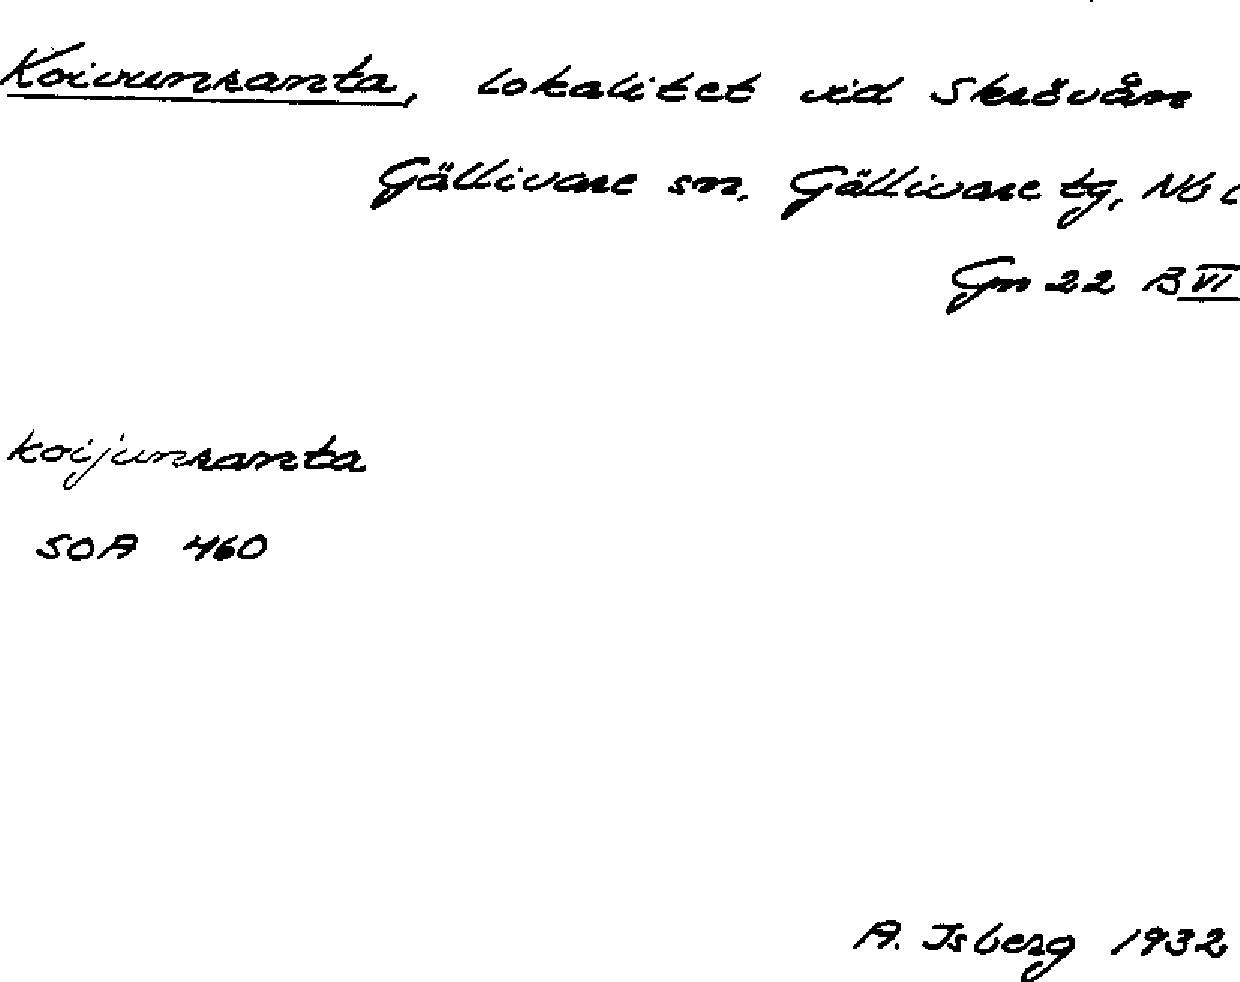 Koivunranta, lokalitet vid Skrövån
Gällivare sn. Gällivare tg, Nb l
Gn 22 B VI
koijunranta
SOA 460
A. Isberg 1932